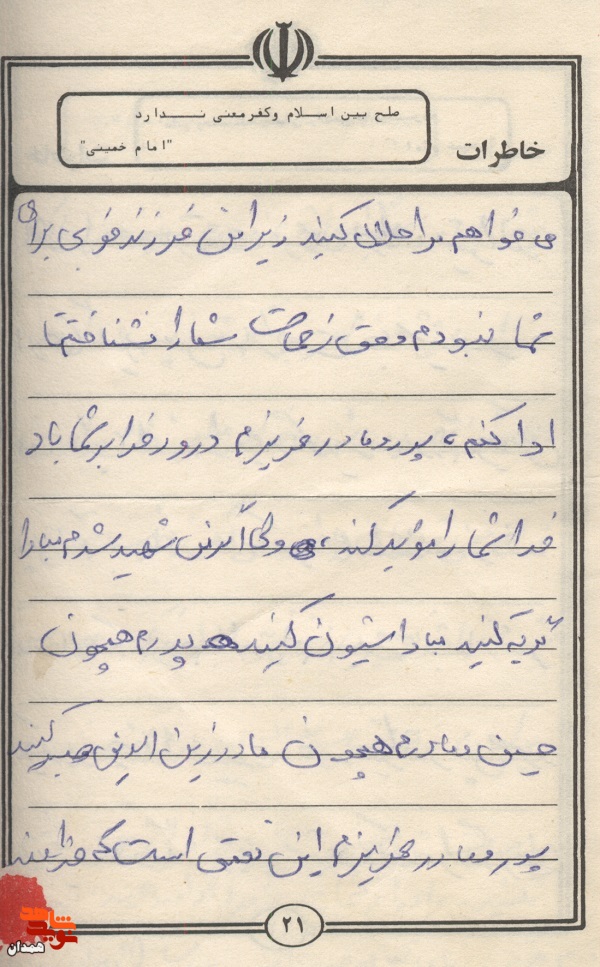 صلح بین اسلام و کفر معنی ندارد
"امام خمینی"
خاطرات
می خواهم مرا حلال کنید زیرا من فرزند خوبی برای
شما نبودم و حق زحمات شما را نشناختم تا
ادا کنم، پدر و مادر عزیزم درود خدا بر شما باد
خدا شما را مؤید کند، ولی اگر من شهید شدم مبادا
گریه کنید مبادا شیون کنید پدرم همچون
حسین و مادرم همچون مادر زین الدین صبر کنید
پدر و مادر عزیزم این نعمتی است که خداوند
۲۱
شاهد
نوید
همدان